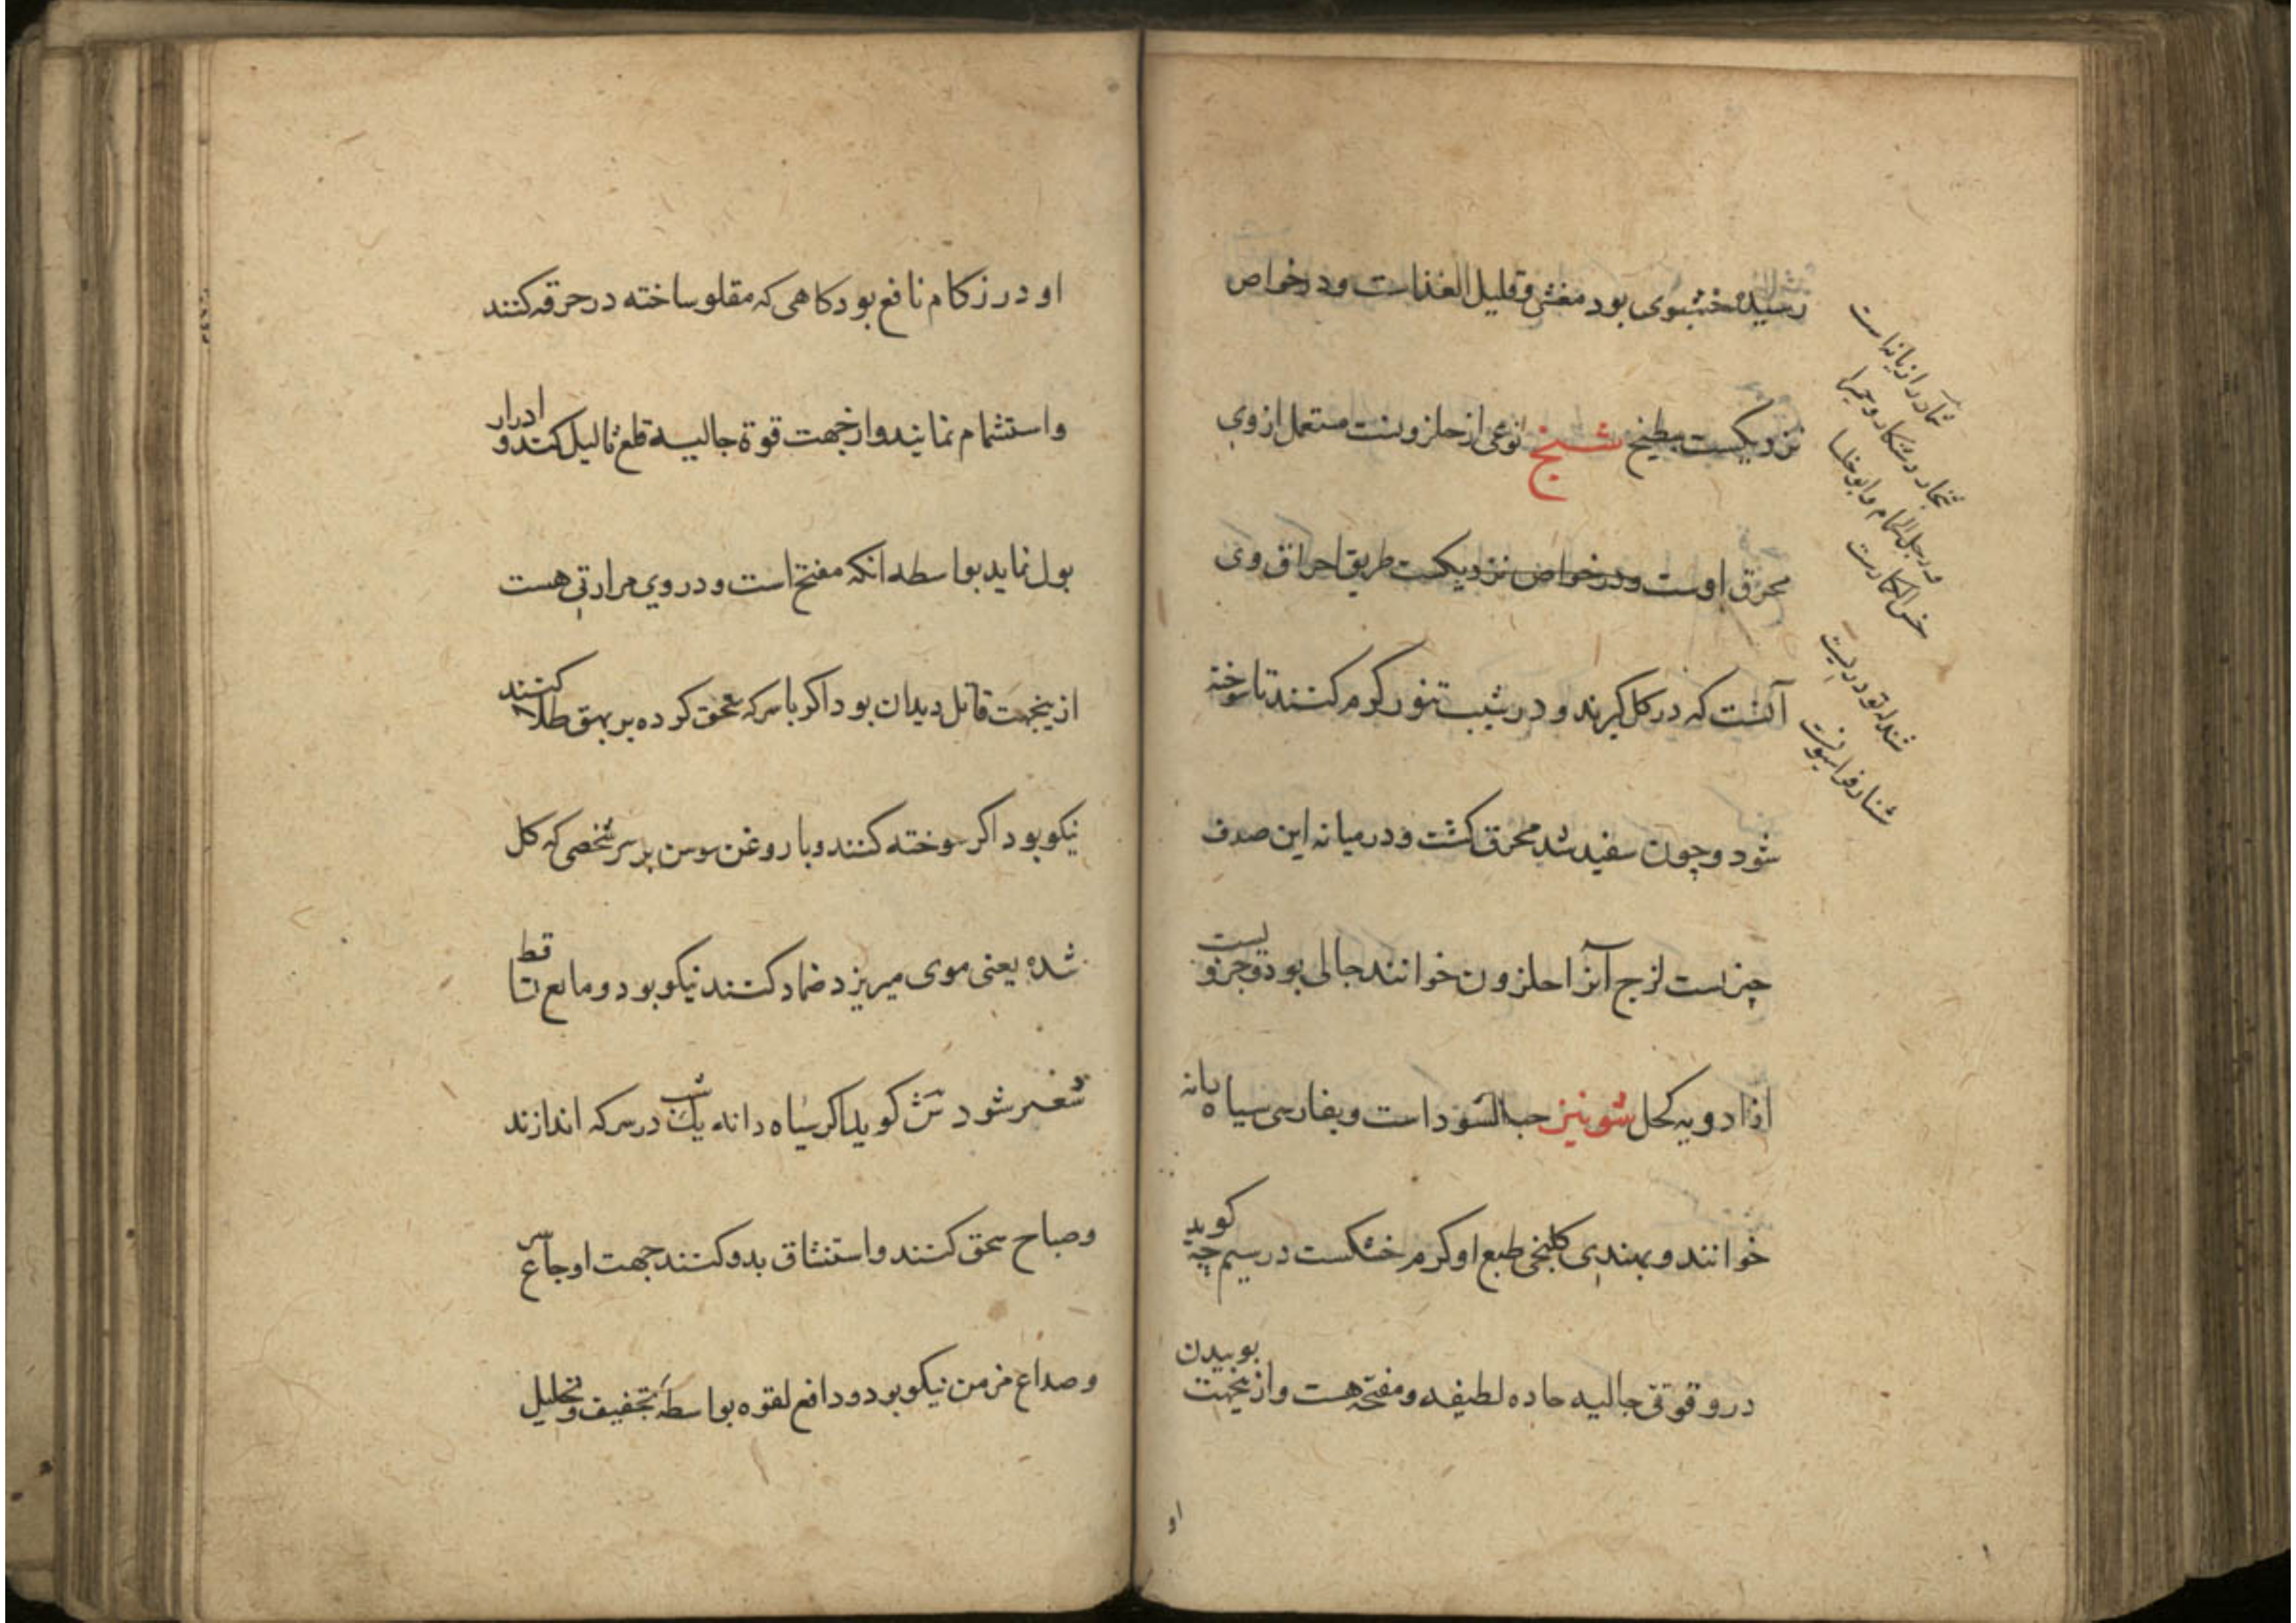 رسیده خشبوی بود مغشی و قلیل الغذاست و در خواص
نزدیکست ببطیخ شنج نوعی از حلزونست مستعمل از وی
محرق اوست و در خواص نزدیکست طریق احراق وی
آنست که در کل کیرند و در شیب تنور کرم کنند تا سوخته
شود و چون سفید شد محرق کشت و در میانه این صدف
چیزیست لزج آنرا حلزون خوانند جالی بود و جزویست
از ادویه کحل شونیز حب السودا است و بفارسی سیاه دانه
خوانند و بهندی کلنجی طبع او کرم خشکست در سیم چه کوید
درو قوتی جالیه حاده لطیفه و مفتحه هست و ازینجهت بوییدن
او
شمار رازیانه است
شنجار و شنکار و حمیرا
و رجل الحمام و ابوخلسا
خس الحمارست
او در زکام نافع بود کاهی که مقلو ساخته در خرقه کنند
و استشمام نمایند و از جهت قوة جالیه قلع ثالیل کند و ادرار
بول نماید بواسطه انکه مفتح است و در وی مرارتی هست
ازینجهت قاتل دیدان بود اکر با سرکه سحق کرده بر بهق طلا کنند
نیکو بود اکر سوخته کنند و با روغن سوسن بر سر شخصی که کل
شده یعنی موی میریزد ضماد کنند نیکو بود و مانع تساقط
شعر شود ش کوید اکر سیاه دانه یک شب در سرکه اندازند
و صباح سحق کنند و استنشاق بدو کنند جهت اوجاع سر
و صداع مزمن نیکو بود و دافع لقوه بواسطه تجفیف و تحلیل